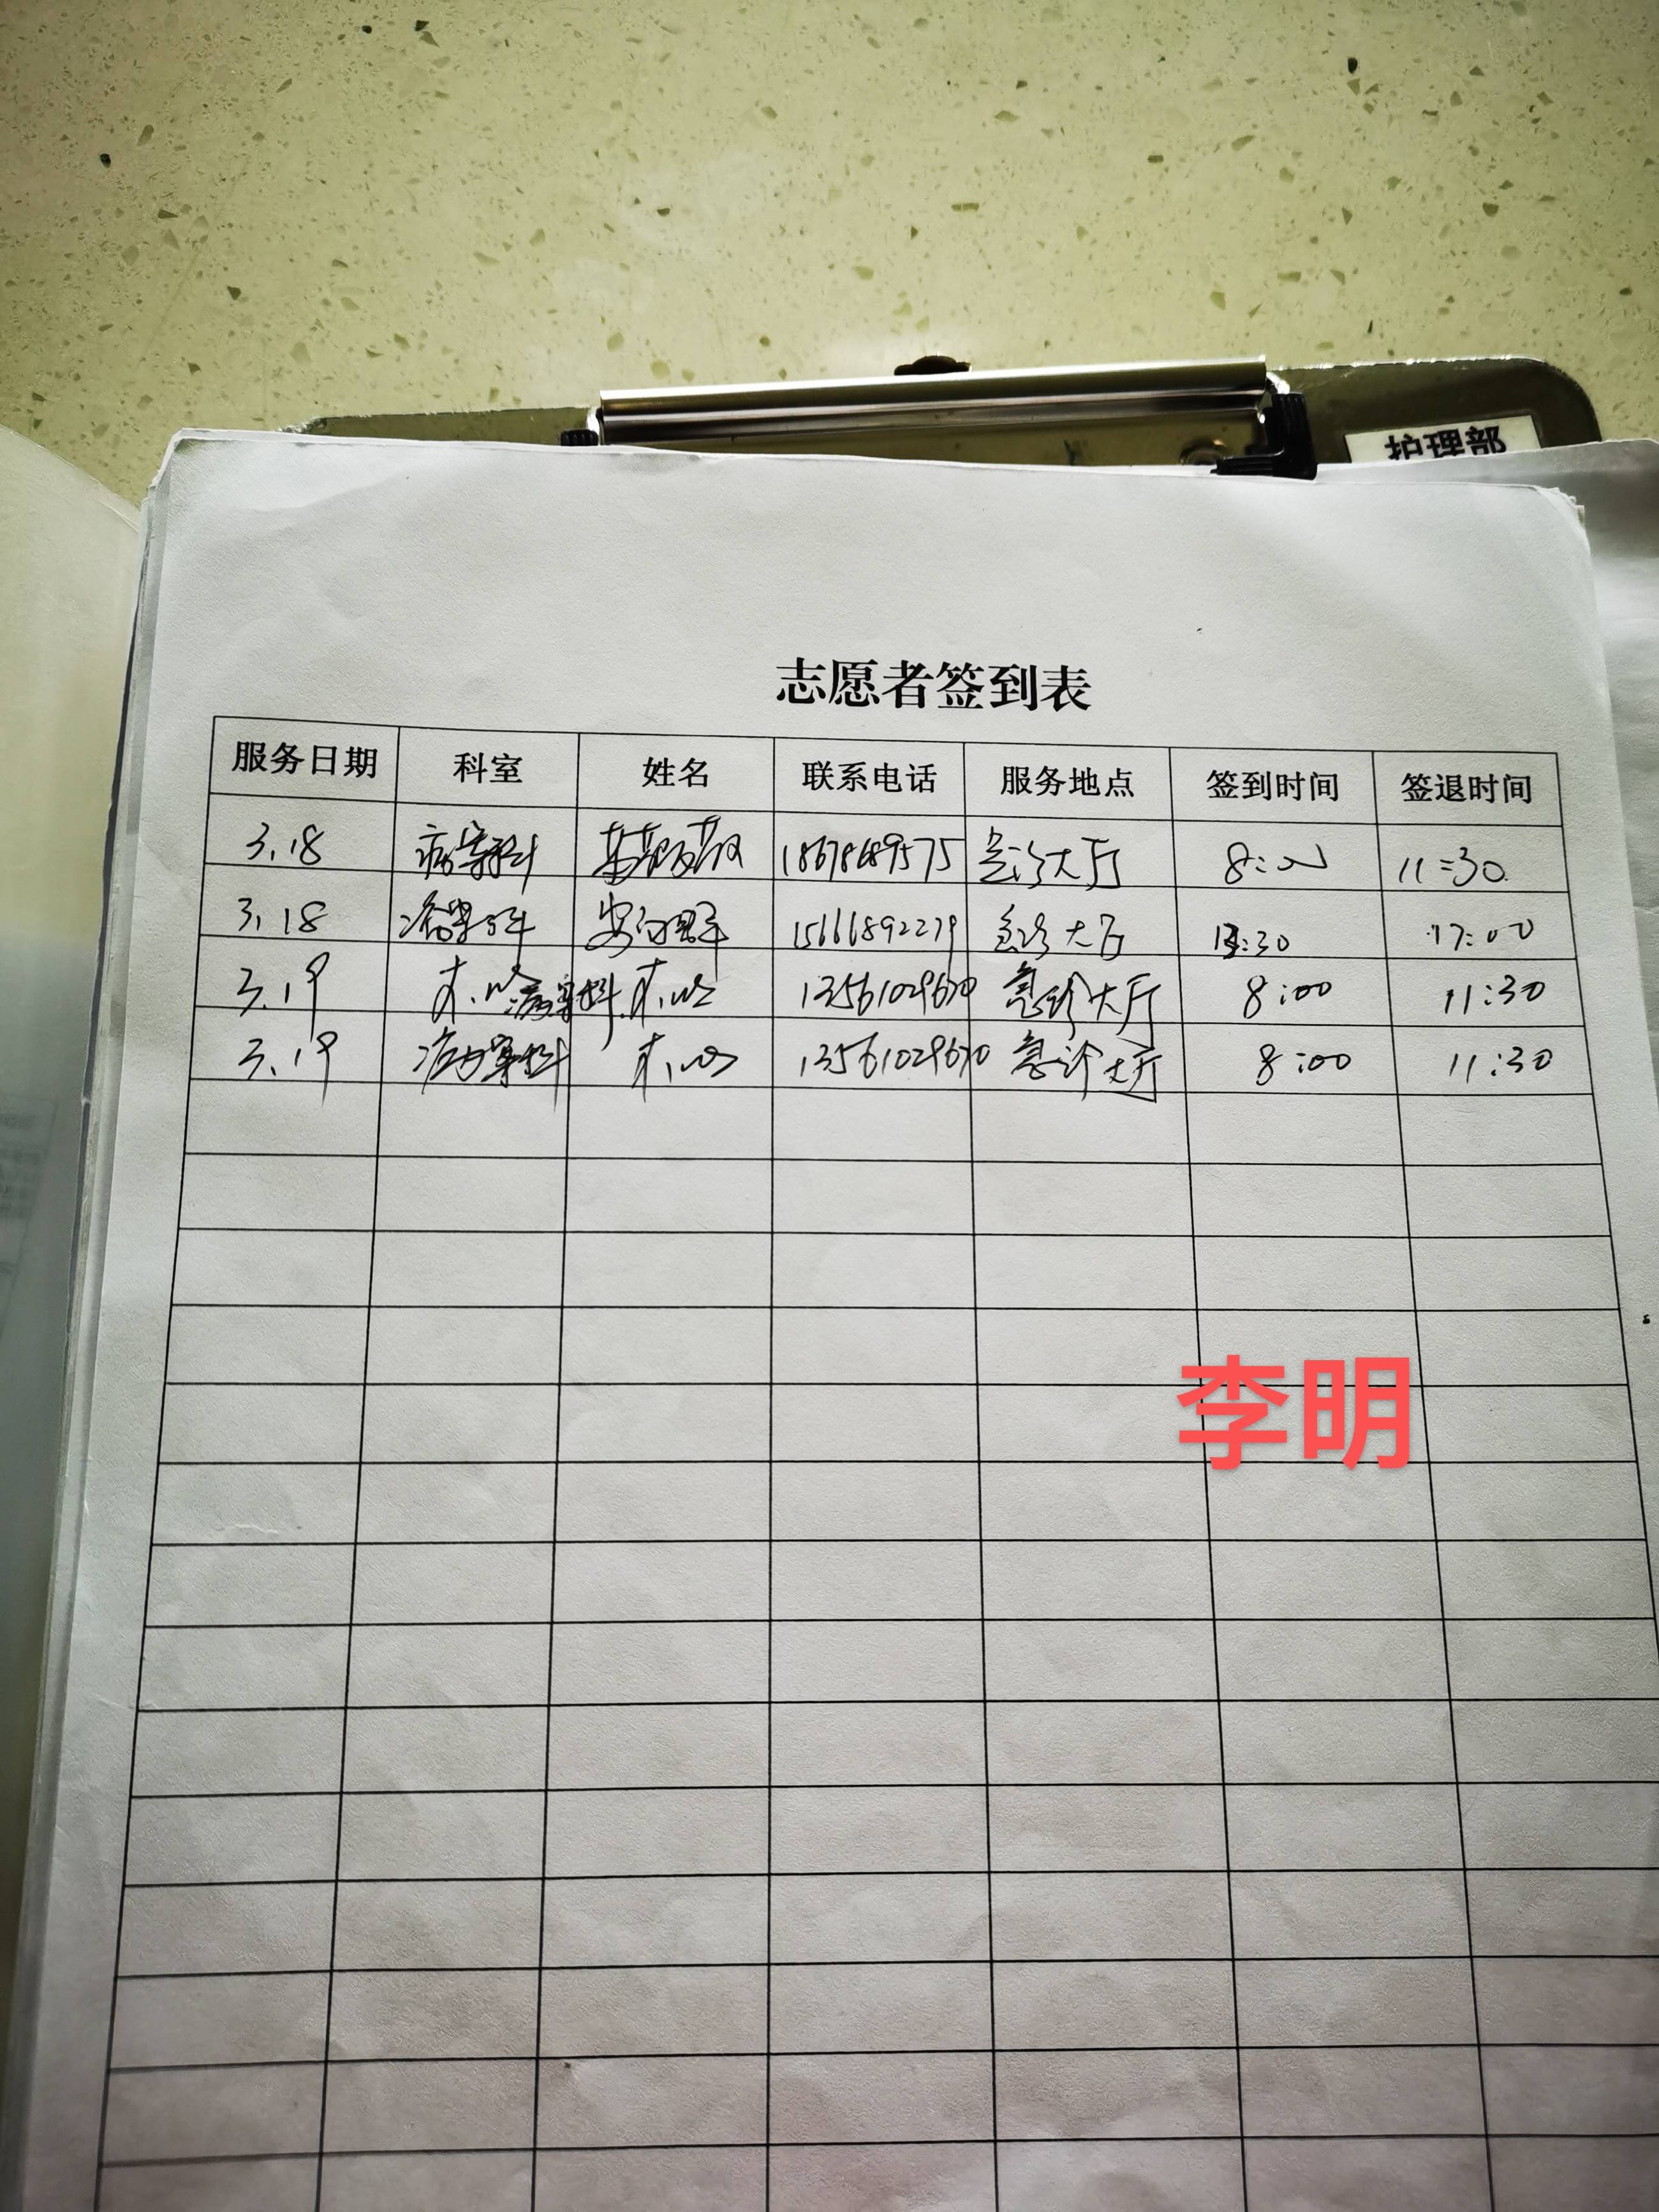 护理部
志愿者签到表
服务日期 科室 姓名 联系电话 服务地点 签到时间 签退时间
3.18 18678689575 急诊大厅 8:00 11:30
3.18 15666892279 急诊大厅 13:30 17:00
3.19 13561029670 急诊大厅 8:00 11:30
3.19 13561029670 急诊大厅 8:00 11:30
李明